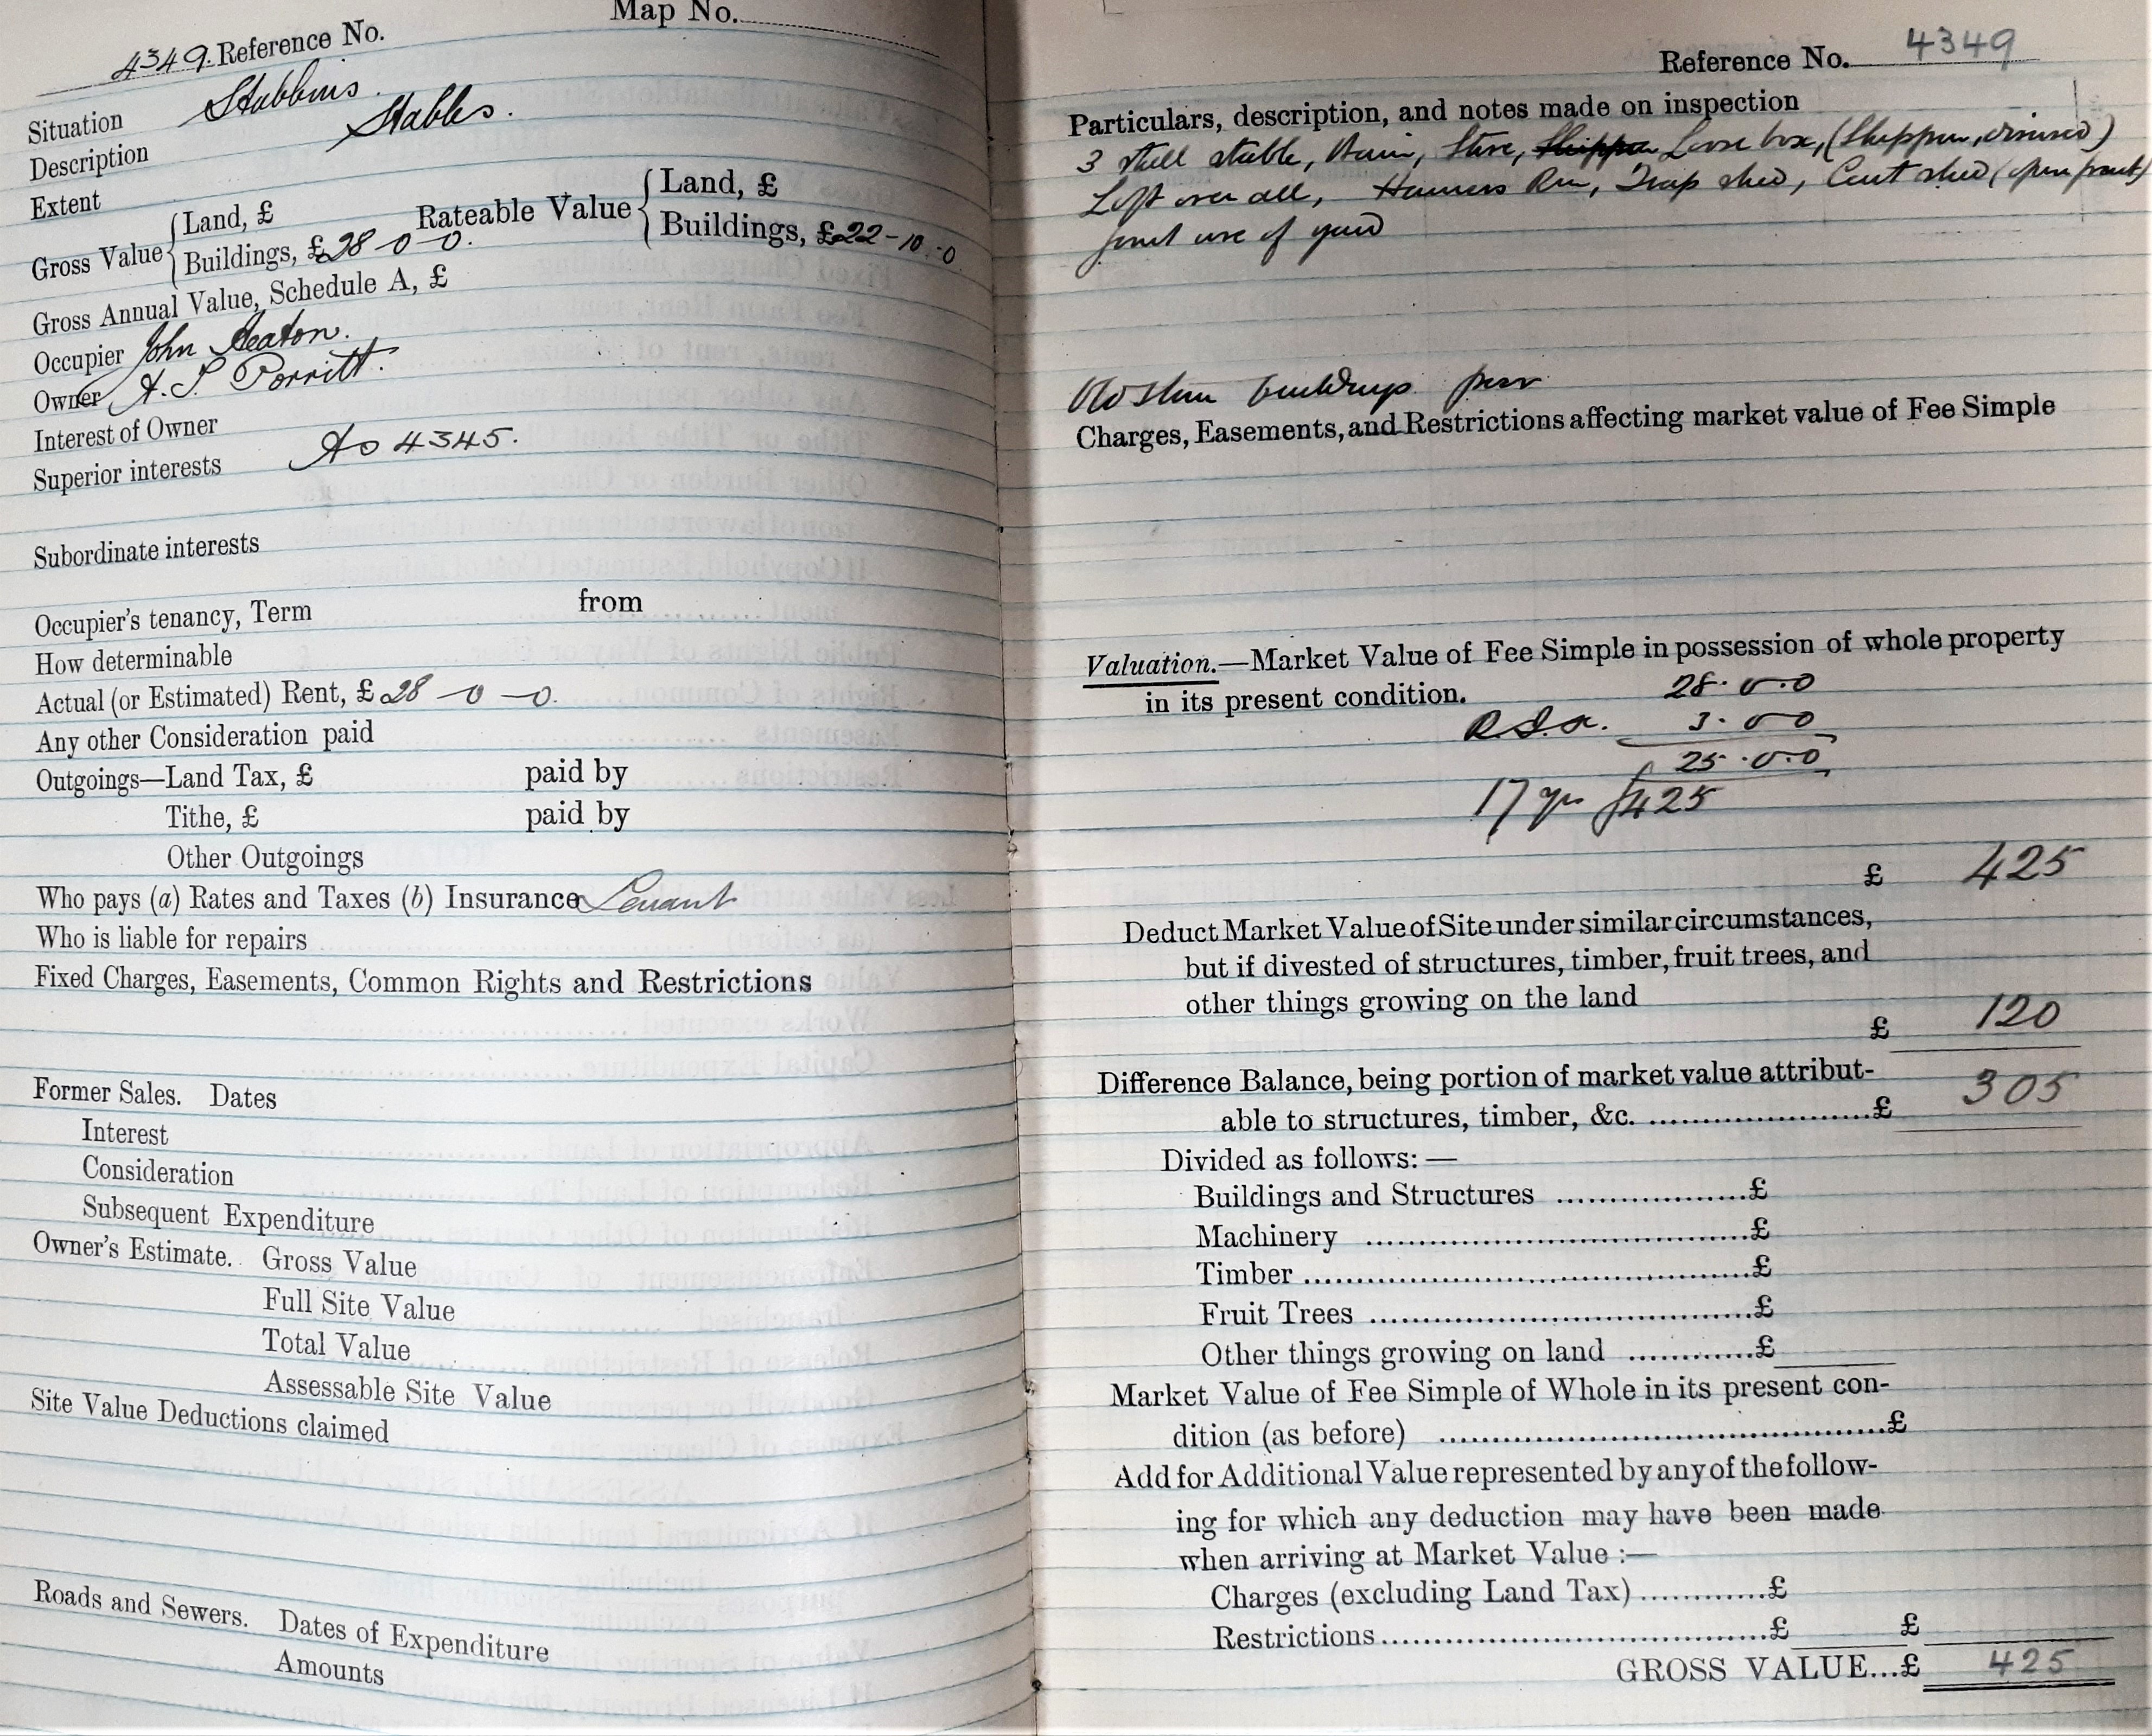 Map No.
4349. Reference No.
Situation Stubbins.
Description Stables.
Extent
Gross Value { Land, £ Rateable Value { Land, £
Buildings, £28-0-0. Buildings, £22-10-0
Gross Annual Value, Schedule A, £
Occupier John Heaton.
Owner A. T. Porritt.
Interest of Owner
Superior interests As 4345.
Subordinate interests
Occupier's tenancy, Term from
How determinable
Actual (or Estimated) Rent, £28-0-0.
Any other Consideration paid
Outgoings—Land Tax, £ paid by
Tithe, £ paid by
Other Outgoings
Who pays (a) Rates and Taxes (b) Insurance Tenant
Who is liable for repairs
Fixed Charges, Easements, Common Rights and Restrictions
Former Sales. Dates
Interest
Consideration
Subsequent Expenditure
Owner's Estimate. Gross Value
Full Site Value
Total Value
Assessable Site Value
Site Value Deductions claimed
Roads and Sewers. Dates of Expenditure
Amounts
Reference No. 4349
Particulars, description, and notes made on inspection
3 stall stable, Barn, Store, Shippon Loose box, (Shippon, disused)
Loft over all, Harness Rm, Trap shed, Cart shed (open front)
joint use of yard
Old stone buildings poor
Charges, Easements, and Restrictions affecting market value of Fee Simple
Valuation.—Market Value of Fee Simple in possession of whole property
in its present condition. 28.0.0
3.0.0
25.0.0
17 yrs £425
£ 425
Deduct Market Value of Site under similar circumstances,
but if divested of structures, timber, fruit trees, and
other things growing on the land
£ 120
Difference Balance, being portion of market value attribut-
able to structures, timber, &c. ......................£ 305
Divided as follows:—
Buildings and Structures ..................£
Machinery ....................................£
Timber ..........................................£
Fruit Trees ....................................£
Other things growing on land ............£
Market Value of Fee Simple of Whole in its present con-
dition (as before) ..........................................£
Add for Additional Value represented by any of the follow-
ing for which any deduction may have been made
when arriving at Market Value :—
Charges (excluding Land Tax) ............£
Restrictions....................................£ £
GROSS VALUE...£ 425